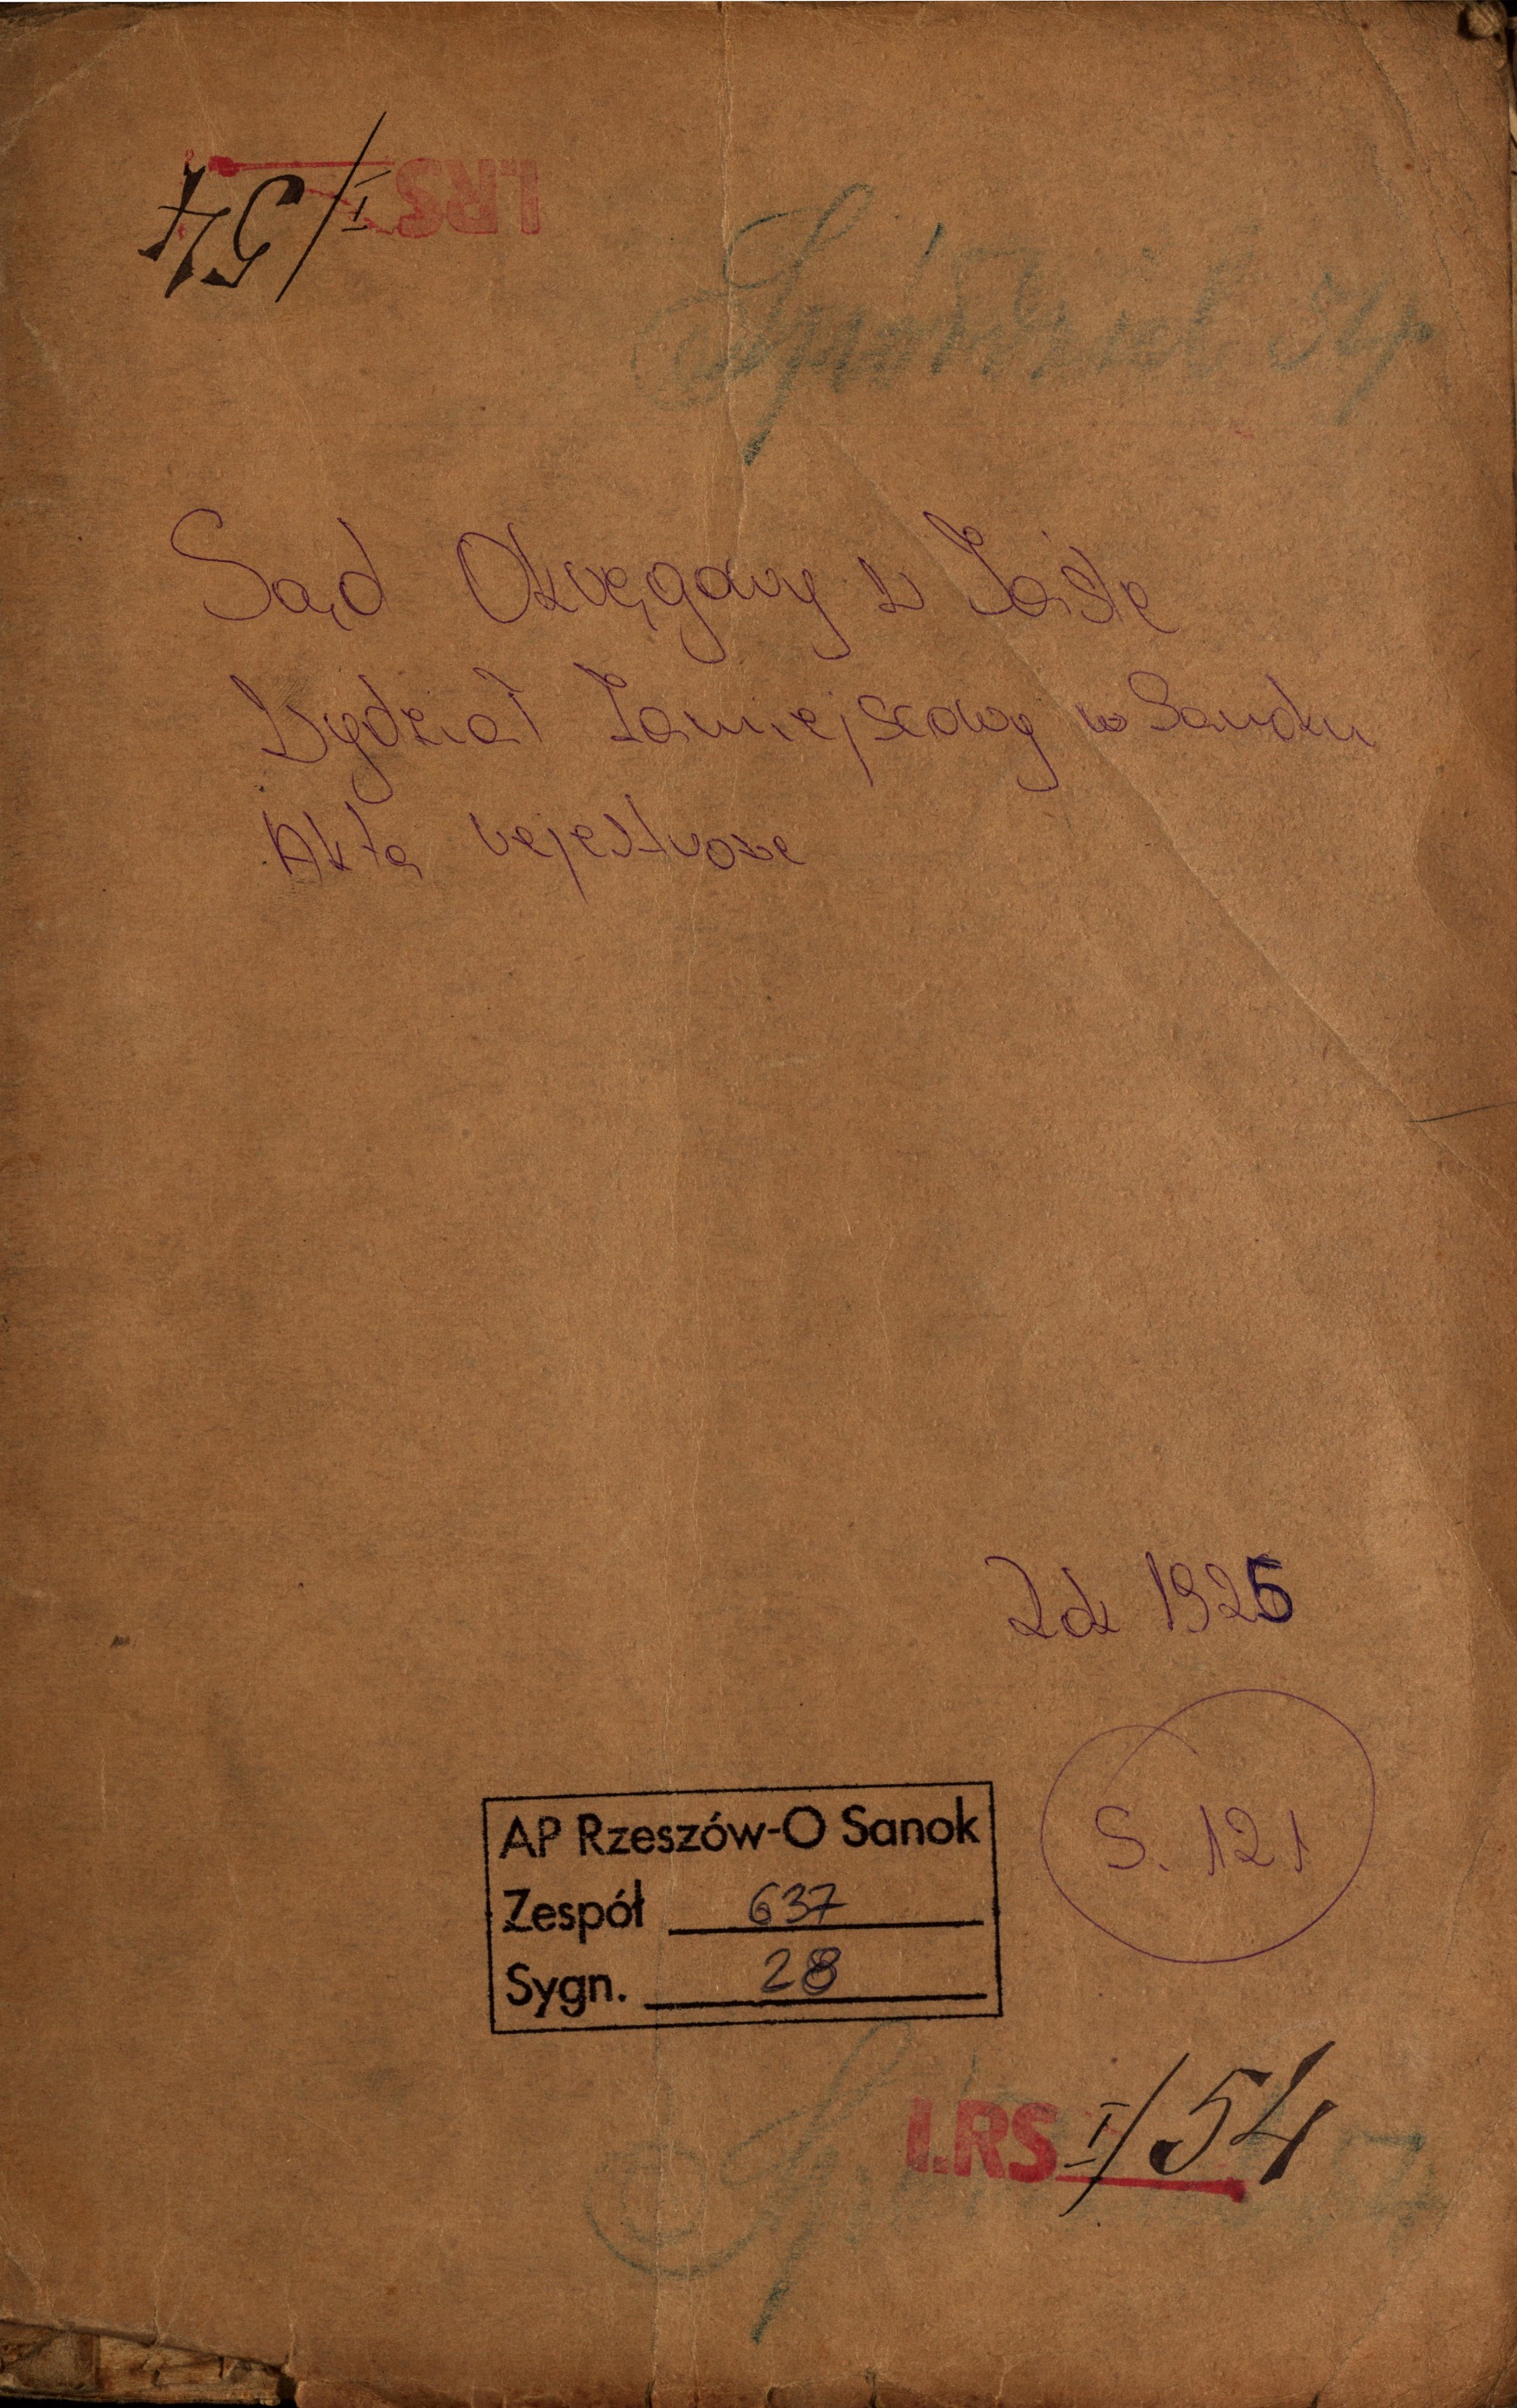 I.RS I/54
Spółdziel 54
Sąd Okręgowy w Jaśle
Wydział Zamiejscowy w Sanoku
Akta rejestrowe
Zdk 1925
S. 121
AP Rzeszów-O Sanok
Zespół 637
Sygn. 28
I.RS I/54